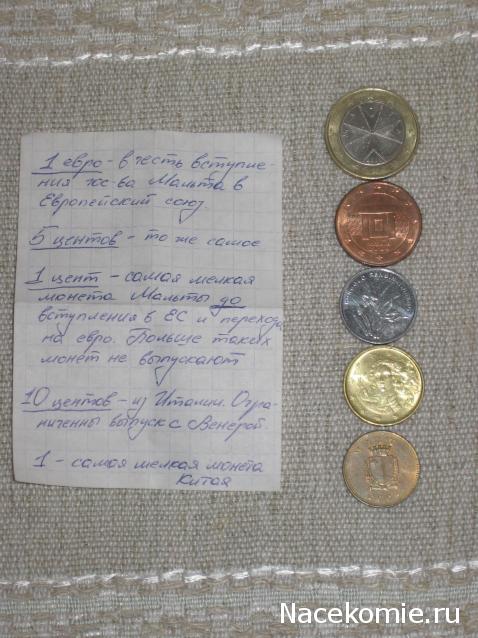 1 евро - в честь вступле-
ния гос-ва Мальта в
Европейский союз.
5 центов - то же самое
1 цент - самая мелкая
монета Мальты до
вступления в ЕС и перехода
на евро. Больше таких
монет не выпускают
10 центов - из Италии. Огра-
ниченны выпуск с Венерой.
1 - самая мелкая монета
Китая
Nacekomie.ru